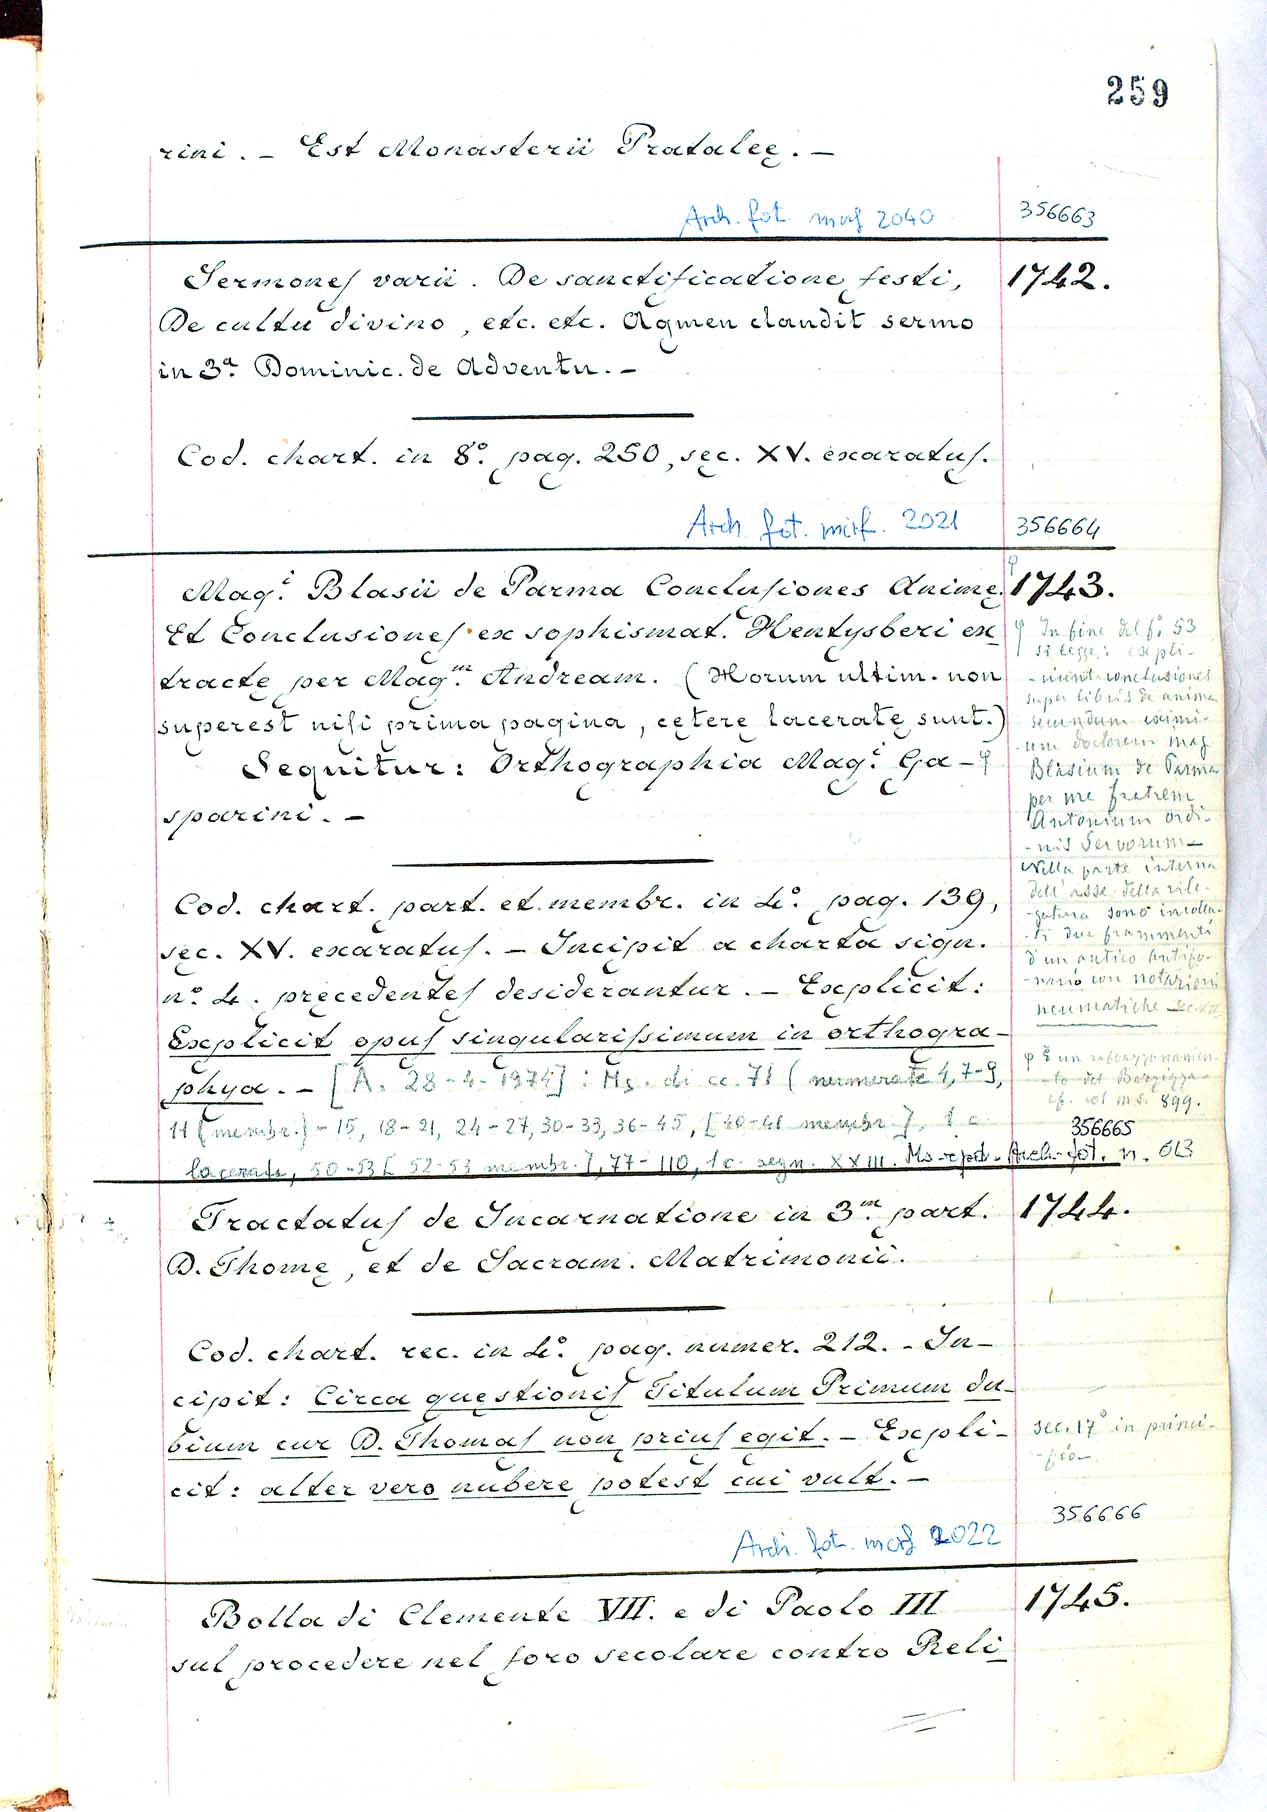 259
rini. — Est Monasterii Pratalee. —
Arch. fot. mirf 2040
356663
Sermones varii. De sanctificatione festi,
1742.
De cultu divino, etc. etc. Agmen claudit sermo
in 3ª Dominic. de Adventu. —
Cod. chart. in 8º. pag. 250, sec. XV. exaratus.
Arch. fot. mirf. 2021
356664
Magⁱ. Blasii de Parma Conclusiones Anime.
φ
1743.
Et Conclusiones ex sophismat. Hentysberi ex
tracte per Magᵐ. Andream. (Horum ultim. non
superest nisi prima pagina, cetere lacerate sunt.)
Sequitur: Orthographia Magⁱ. Ga- φ
sparini. —
φ In fine del fº. 53
si legge: expli-
-ciunt conclusiones
super libris de anima
secundum eximi-
um doctorem mag
Blasium de Parma
per me fratrem
Antonium ordi-
-nis Servorum —
Nella parte interna
dell'asse della rile-
-gatura sono incolla-
-ti due frammenti
d'un antico antifo-
-nario con notazioni
neumatiche
Cod. chart. part. et membr. in 4º. pag. 139,
sec. XV. exaratus. — Incipit a charta sign.
nº. 4. precedentes desiderantur. — Explicit:
Explicit opus singularissimum in orthogra-
phya. — [A. 28-4-1974]: Ms. di cc. 71 (numerate 4, 7-9,
11 [membr.] - 15, 18-21, 24-27, 30-33, 36-45, [40-41 membr.], 1 c.
lacerata, 50-53 [52-53 membr.], 77-110, 1 c. segn. XXIII. Ms. Arch. fot. n. 613
φ È un
-to del Barzizza
cf. col ms. 899.
356665
Tractatus de Incarnatione in 3ᵐ. part.
1744.
D. Thome, et de Sacram. Matrimonii.
Cod. chart. rec. in 4º. pag. numer. 212. — In-
cipit: Circa questionis Titulum Primum du-
bium cur D. Thomas non prius egit. — Expli-
cit: alter vero nubere potest cui vult. —
sec. 17º in princi-
-pio —
356666
Arch. fot. mirf 2022
Bolla di Clemente VII. e di Paolo III
1745.
sul procedere nel foro secolare contro Reli